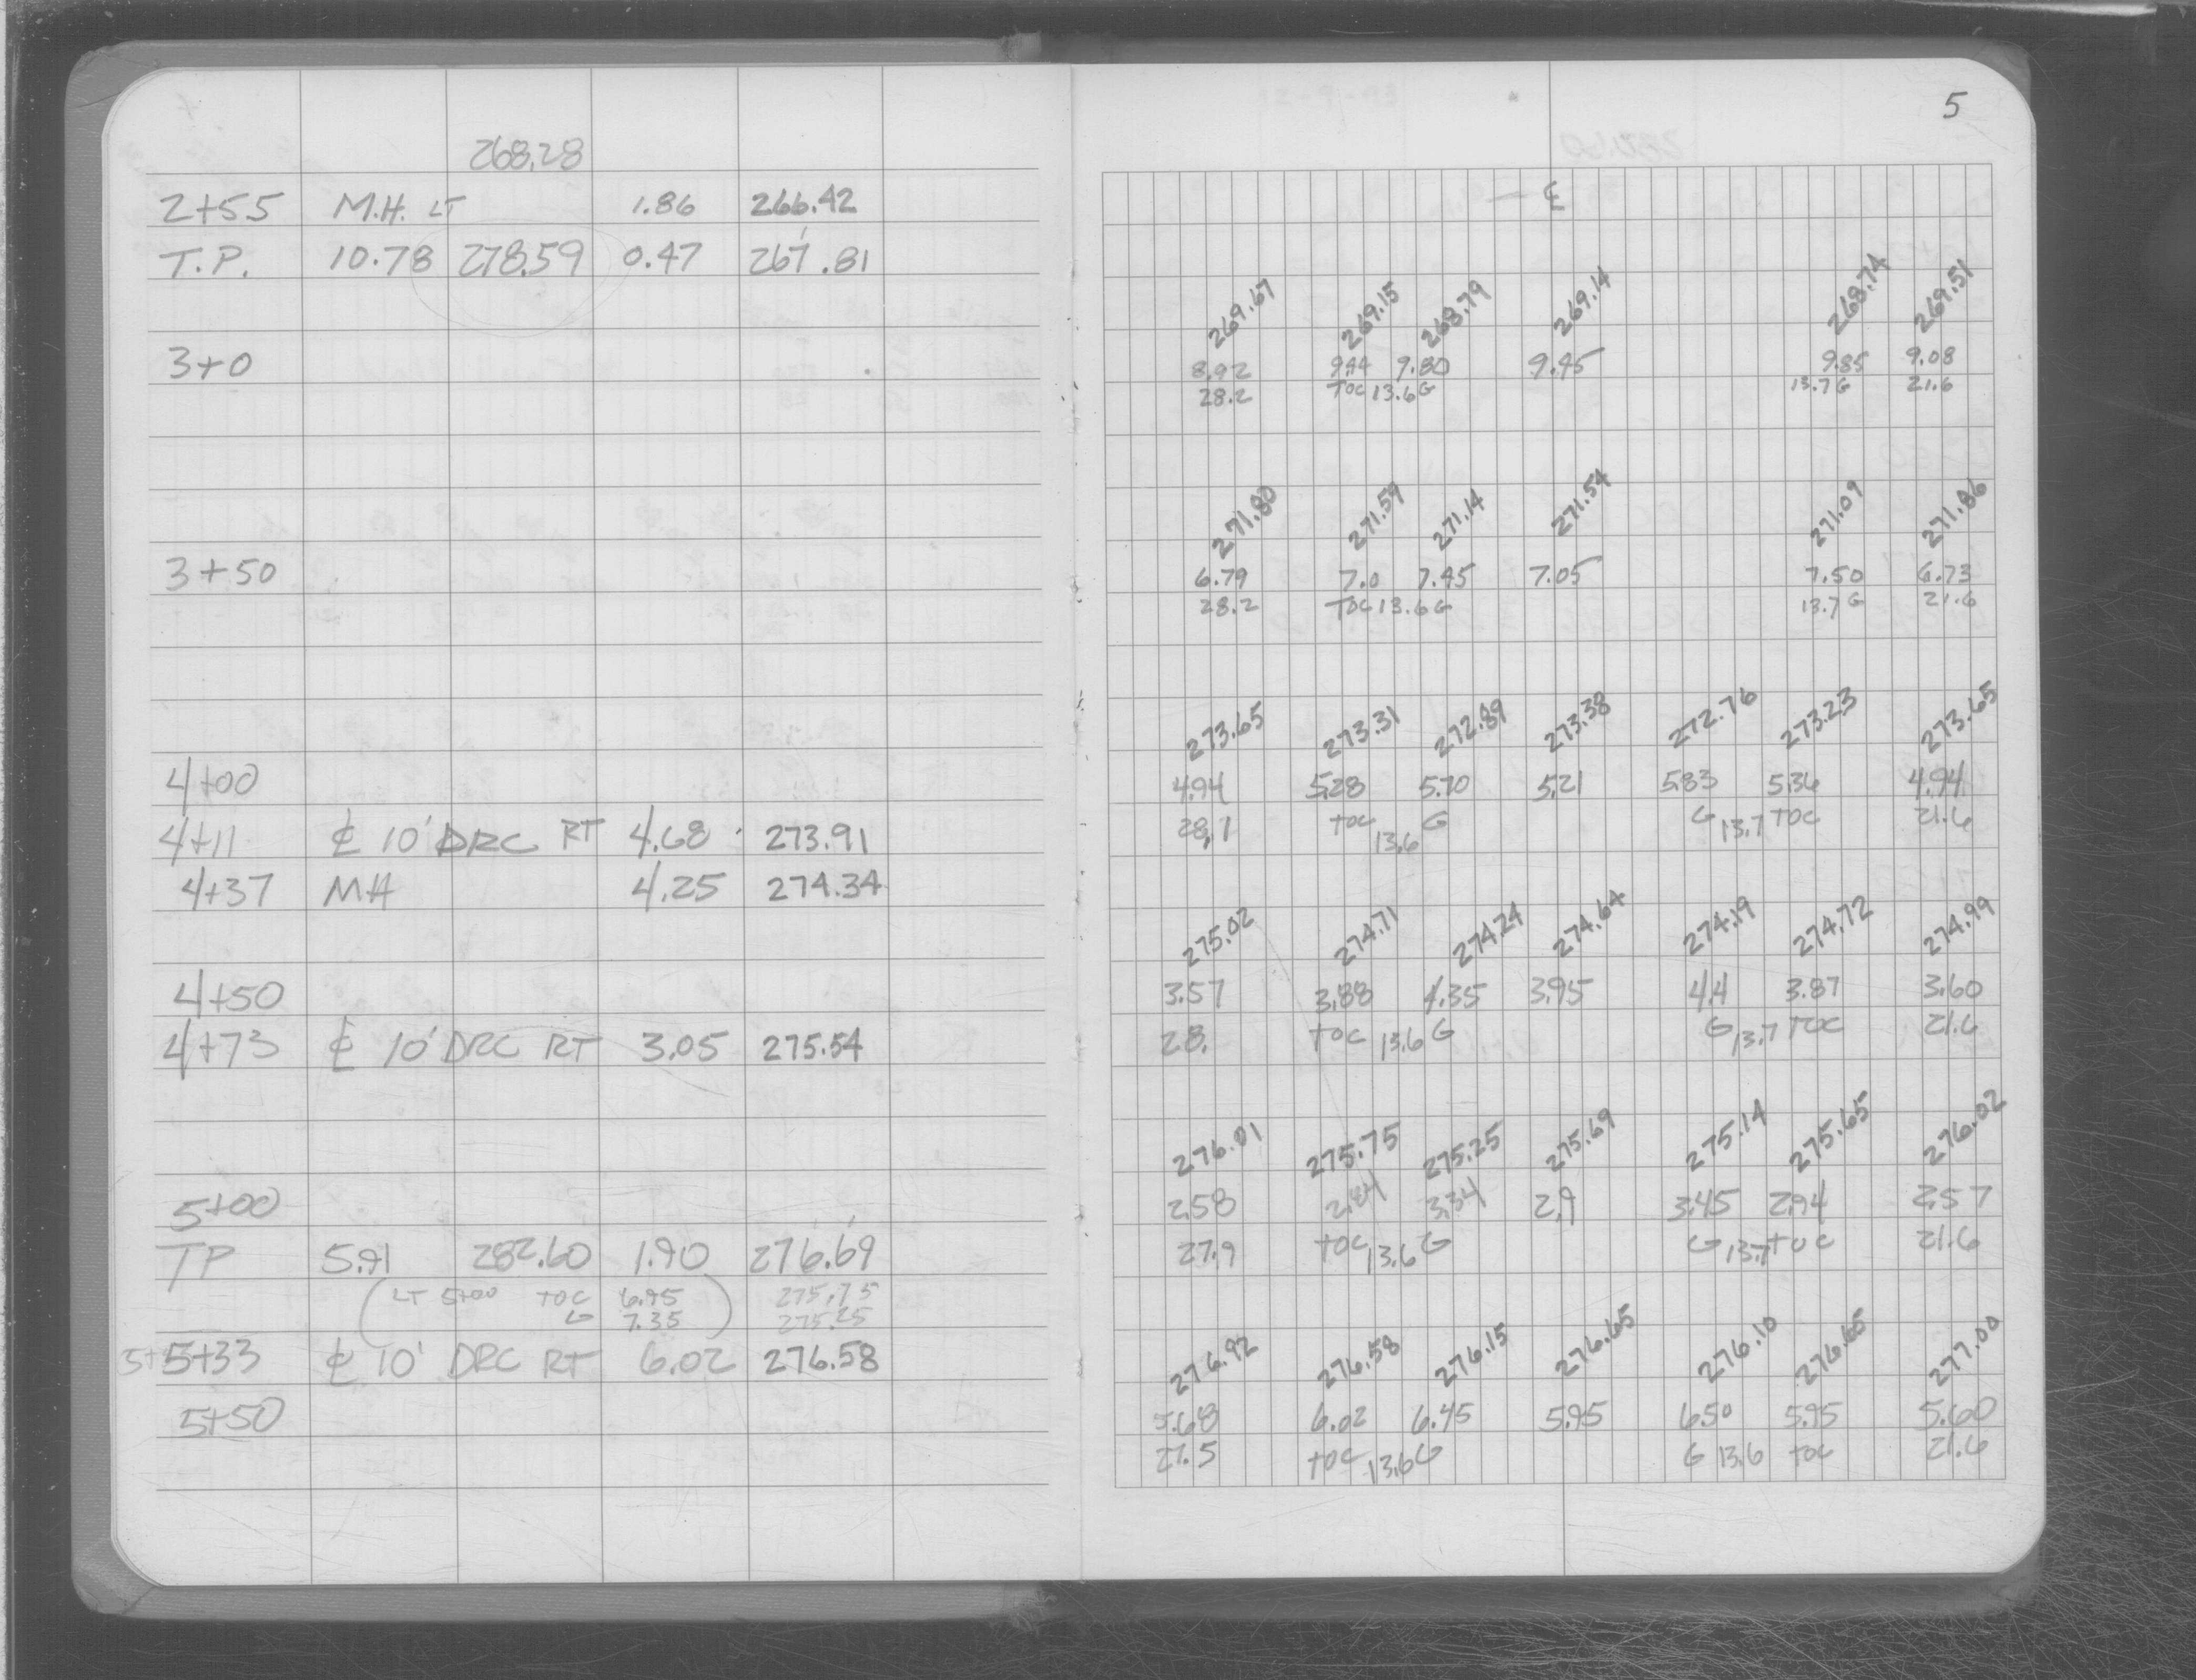 268.28
2+55 M.H. LT 1.86 266.42
T.P. 10.78 278.59 0.47 267.81
3+0
3+50
4+00
4+11 ℄ 10' DRC RT 4.68 273.91
4+37 MH 4.25 274.34
4+50
4+73 ℄ 10' DRC RT 3.05 275.54
5+00
TP 5.91 282.60 1.90 276.69
(LT 5+00 TOC 6.85) 275.75
G 7.35 275.25
5+33 ℄ 10' DRC RT 6.02 276.58
5+50
5
℄
269.67 269.15 268.79 269.14 268.74 269.51
8.92 9.44 9.80 9.45 9.85 9.08
28.2 TOC 13.6 G 13.7 G 21.6
271.80 271.59 271.14 271.54 271.09 271.86
6.79 7.0 7.45 7.05 7.50 6.73
28.2 TOC 13.6 G 13.7 G 21.6
273.65 273.31 272.89 273.38 272.76 273.23 273.65
4.94 5.28 5.70 5.21 5.83 5.36 4.94
28.1 TOC 13.6 G G 13.7 TOC 21.6
275.02 274.71 274.24 274.64 274.19 274.72 274.99
3.57 3.88 4.35 3.95 4.4 3.87 3.60
28. TOC 13.6 G G 13.7 TOC 21.6
276.01 275.75 275.25 275.69 275.14 275.65 276.02
2.58 2.84 3.34 2.9 3.45 2.94 2.57
27.9 TOC 13.6 G G 13.7 TOC 21.6
276.92 276.58 276.15 276.65 276.10 276.65 277.00
5.68 6.02 6.45 5.95 6.50 5.95 5.60
27.5 TOC 13.6 G G 13.6 TOC 21.6